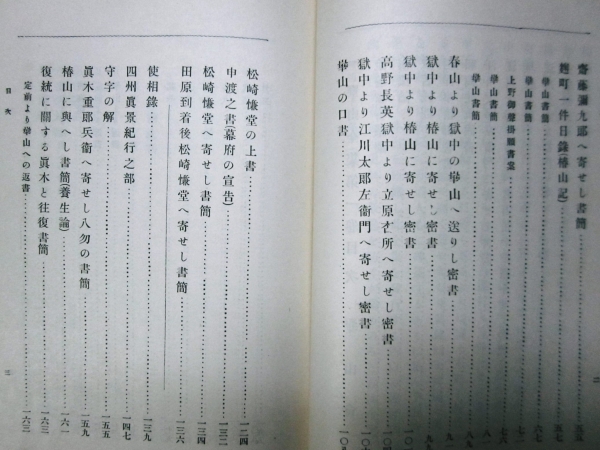 齋藤彌九郎へ寄せし書簡
麹町一件日錄(椿山記) 五七
崋山書簡
崋山書簡
上野御靈掛願書堂
崋山書簡
春山より獄中の崋山へ送りし密書
獄中より椿山に寄せし密書
獄中より椿山に寄せし密書
高野長英獄中より立原杏所へ寄せし密書
獄中より江川太郎左衞門へ寄せし密書
崋山の口書
松崎慊堂の上書 一二四
申渡之書(幕府の宣告) 一三一
松崎慊堂へ寄せし書簡 一三四
田原到着後松崎慊堂へ寄せし書簡 一三六
使相錄 一三九
四州眞景紀行之部 一四七
守字の解 一五五
眞木重郎兵衞へ寄せし八勿の書簡 一五九
椿山に與へし書簡(養生論) 一六一
復統に關する眞木と往復書簡 一六三
定前より崋山への返書 一六三
目次
三